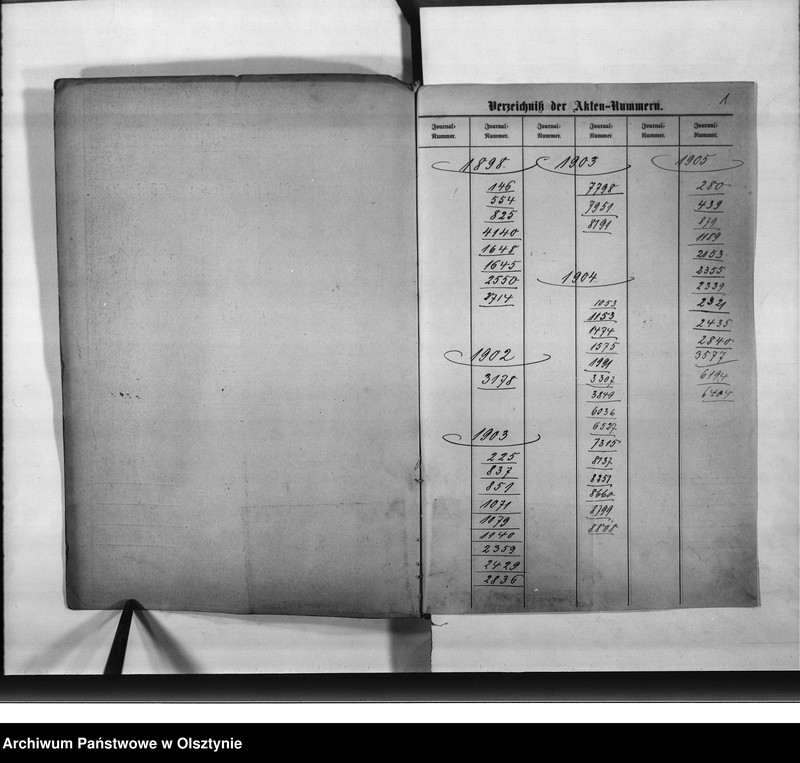 1
Verzeichniß der Akten-Nummern.
Journal-Nummer. Journal-Nummer. Journal-Nummer. Journal-Nummer. Journal-Nummer. Journal-Nummer.
1898.
146
554
825
4140
1648
1645
2550
2714
1902
3178
1903
225
837
851
1071
1079
1940
2359
2429
2836
1903
7798
7951
8191
1904
1053
1153
1474
1575
1991
3307
3849
6036
6527
7315
8137
8351
8660
8799
8808
1905
280
439
879
1189
2053
2355
2339
2321
2435
2840
3577
6194
Archiwum Państwowe w Olsztynie